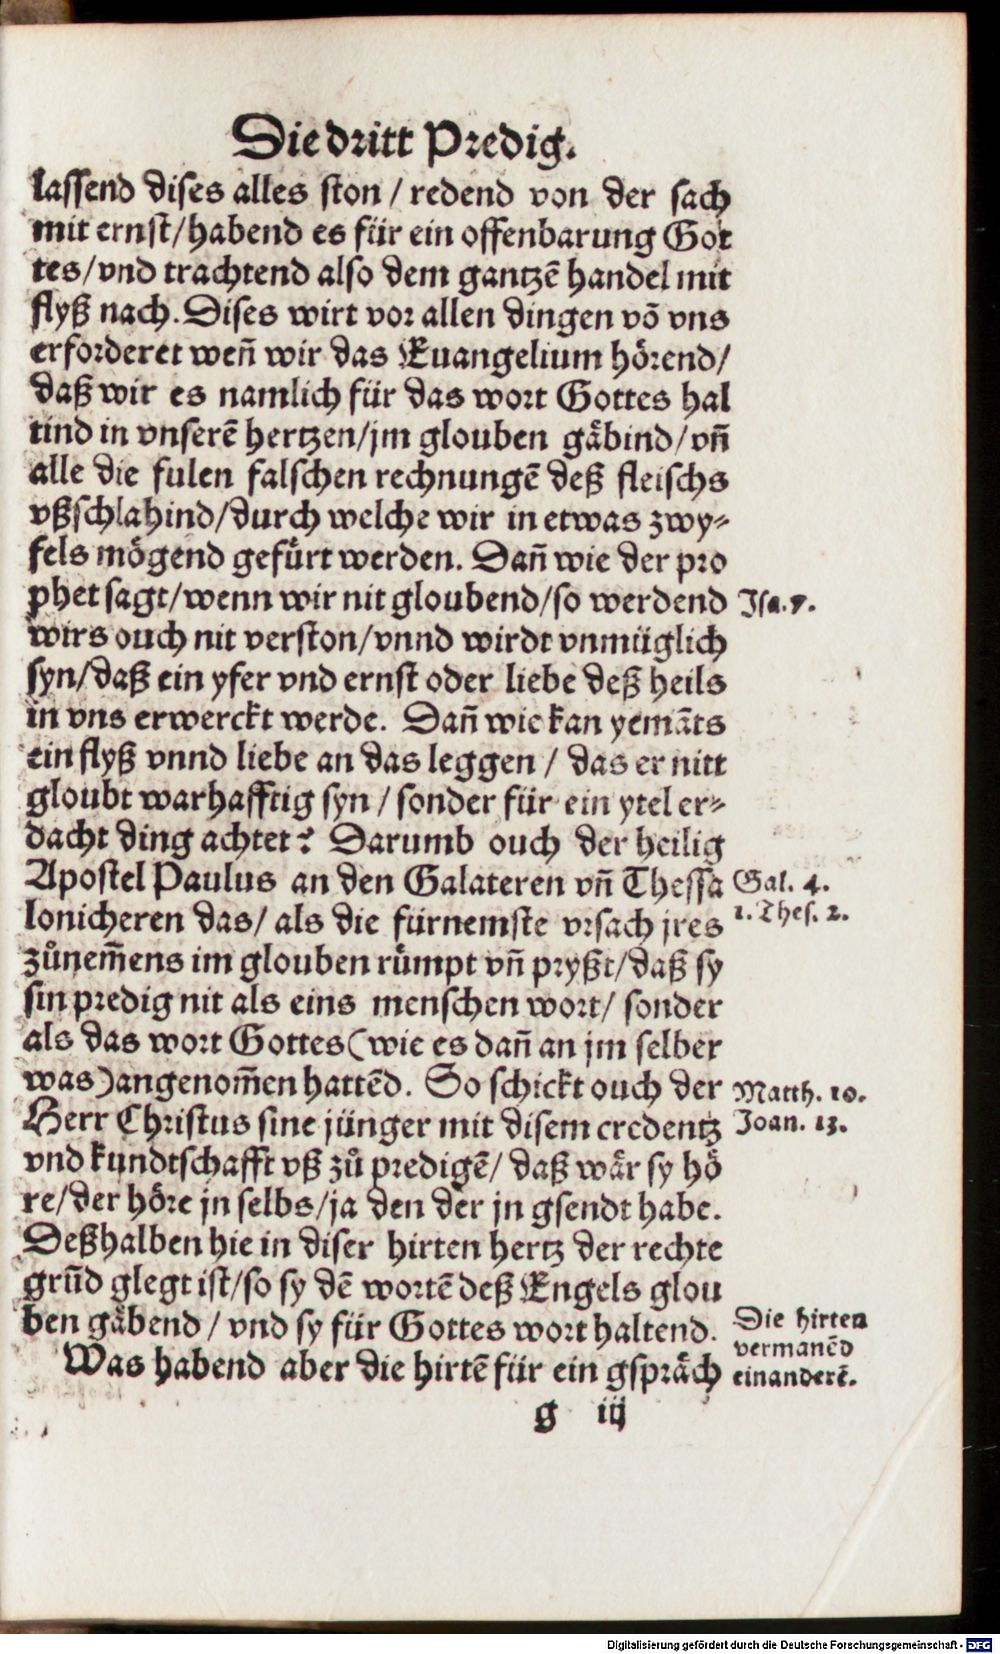 Die dritt Predig.
lassend dises alles ston / redend von der sach
mit ernst/habend es für ein offenbarung Got
tes/vnd trachtend also dem gantzē handel mit
flyß nach. Dises wirt vor allen dingen võ vns
erforderet weñ wir das Euangelium hörend/
daß wir es namlich für das wort Gottes hal
tind in vnserē hertzen/jm glouben gäbind/vñ
alle die fulen falschen rechnungē deß fleischs
vßschlahind/durch welche wir in etwas zwy⸗
fels mögend gefürt werden. Dañ wie der pro
phet sagt/wenn wir nit gloubend/so werdend
wirs ouch nit verston/vnnd wirdt vnmüglich
syn/daß ein yfer vnd ernst oder liebe deß heils
in vns erwerckt werde. Dañ wie kan yemāts
ein flyß vnnd liebe an das leggen / das er nitt
gloubt warhafftig syn / sonder für ein ytel er⸗
dacht ding achtet? Darumb ouch der heilig
Apostel Paulus an den Galateren vñ Thessa
lonicheren das/ als die fürnemste vrsach jres
zůnem̃ens im glouben rümpt vñ pryßt/daß sy
sin predig nit als eins menschen wort/ sonder
als das wort Gottes(wie es dañ an jm selber
was)angenom̃en hattēd. So schickt ouch der
Herr Christus sine jünger mit disem credentz
vnd kundtschafft vß zů predigē/ daß wär sy hö
re/der höre jn selbs/ja den der jn gsendt habe.
Deßhalben hie in diser hirten hertz der rechte
grūd glegt ist/so sy dē wortē deß Engels glou
ben gäbend / vnd sy für Gottes wort haltend.
Was habend aber die hirtē für ein gspräch
g iij
Isa. 7.
Gal. 4.
1. Thes. 2.
Matth. 10.
Joan. 13.
Die hirten
vermanēd
einanderē.
Digitalisierung gefördert durch die Deutsche Forschungsgemeinschaft - DFG